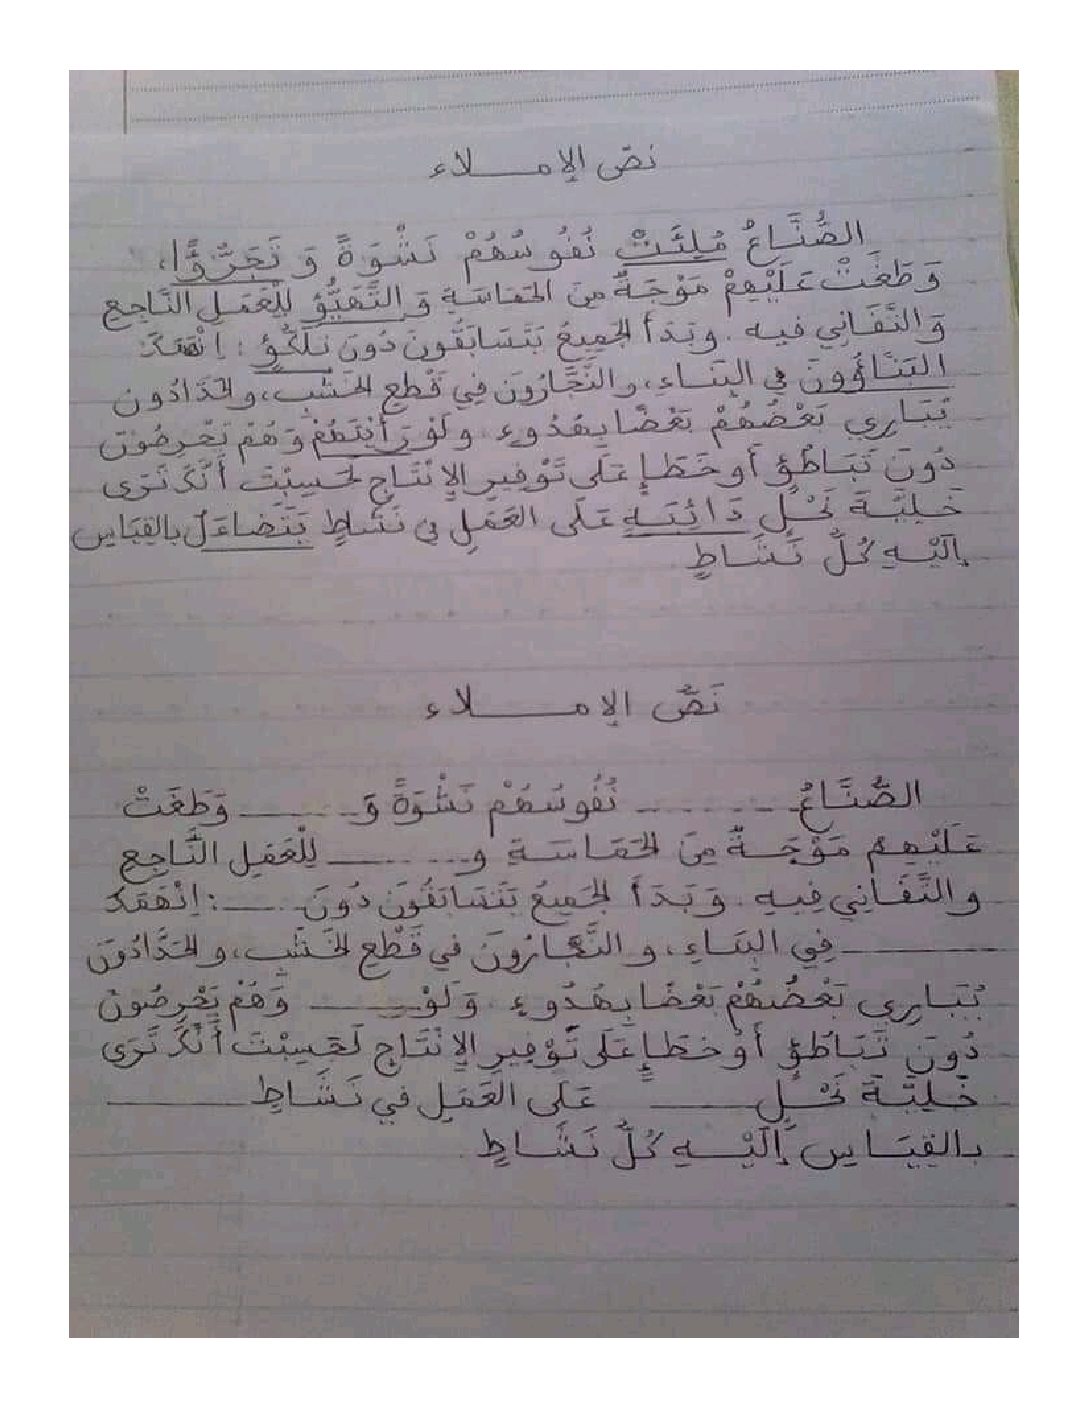 نصّ الإمـــلاء
الصُّنَّاعُ مُلِئَتْ نُفُوسُهُمْ نَشْوَةً وَ تَجَرُّؤًا،
وَطَغَتْ عَلَيْهِمْ مَوْجَةٌ مِنَ الحَمَاسَةِ وَ التَّهَيُّؤِ لِلْعَمَلِ النَّاجِعِ
وَالتَّفَانِي فيه. وبَدَأَ الجَمِيعُ يَتَسَابَقُونَ دُونَ تَلَكُّؤٍ : اِنْهَمَكَ
البَنَّاؤُونَ فِي البِنَاءِ، والنَّجَّارُونَ فِي قَطْعِ الخَشَبِ، والحَدَّادُون
يُبَارِي بَعْضُهُمْ بَعْضًا بِهُدُوءٍ. ولَوْ رَأَيْتَهُمْ وَهُمْ يَحْرِصُونَ
دُونَ تَبَاطُؤٍ أَو خَطَإٍ عَلَى تَوْفِيرِ الإِنْتَاجِ لَحَسِبْتَ أَنَّكَ تَرَى
خَلِيَّةَ نَحْلٍ دَائِبَةٍ عَلَى العَمَلِ فِي نَشَاطٍ يَتَضَاءَلُ بِالقِيَاسِ
إِلَيْهِ كُلُّ نَشَاطٍ.
نَصُّ الإمـــلاء
الصُّنَّاعُ ........ نُفُوسُهُمْ نَشْوَةً وَ........ وَطَغَتْ
عَلَيْهِم مَوْجَةٌ مِنَ الحَمَاسَةِ و........ لِلْعَمَلِ النَّاجِعِ
والتَّفَانِي فِيهِ. وَبَدَأَ الجَمِيعُ يَتَسَابَقُونَ دُونَ ........: اِنْهَمَكَ
........ فِي البِنَاءِ، و النَّجَّارُونَ فِي قَطْعِ الخَشَبِ، والحَدَّادُونَ
يُبَارِي بَعْضُهُمْ بَعْضًا بِهُدُوءٍ. وَلَوْ........ وَهُمْ يَحْرِصُونَ
دُونَ تَبَاطُؤٍ أَوْ خَطَإٍ عَلَى تَوْفِيرِ الإِنْتَاجِ لَحَسِبْتَ أَنَّكَ تَرَى
خَلِيَّةَ نَحْلٍ ........ عَلَى العَمَلِ فِي نَشَاطٍ ........
بِالقِيَاسِ إِلَيْهِ كُلُّ نَشَاطٍ.